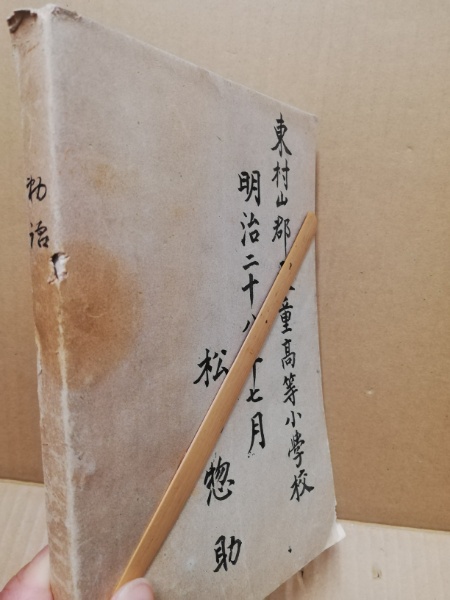 東村山郡 童高等小學校
明治二十八 七月
松 惣助
勅語